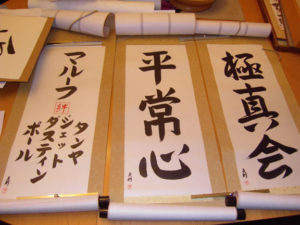 極真会
平常心
マルフ
絆
タンヤ
ジェット
ダスティン
ポール